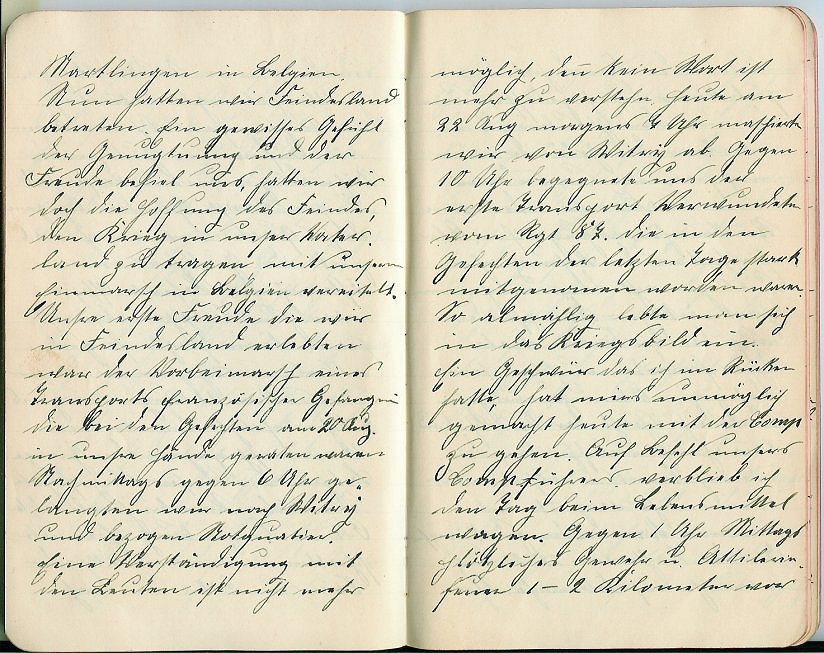 Martlingen in Belgien.
Nun hatten wir Feindesland
betreten. Ein gewisses Gefühl
der Genugtuung und der
Freude befiel uns, hatten wir
doch die Hoffnung des Feindes,
den Krieg in unser Vater-
land zu tragen mit unserm
Einmarsch in Belgien vereitelt.
Unsre erste Freude die wir
in Feindesland erlebten
war der Vorbeimarsch eines
Transports französischer Gefangnen
die bei den Gefechten am 20 Aug.
in unsre Hände geraten waren
Nachmittags gegen 6 Uhr ge-
langten wir nach Witry
und bezogen Notquatier.
Eine Verständigung mit
den Leuten ist nicht mehr
möglich, den̅ kein Wort ist
mehr zu verstehn. Heute am
22 Aug morgens 7 Uhr maschierten
wir von Witry ab. Gegen
10 Uhr begegnete uns der
erste Transport Verwundete
vom Rgt 87. die in den
Gefechten der letzten Tage stark
mitgenomen worden waren.
So almählig lebte man sich
in das Kriegsbild ein.
Ein Geschwür das ich im Rücken
hatte, hat mirs unmöglich
gemacht heute mit der Comp
zu gehen. Auf Befehl unsers
Compführers verblieb ich
den Tag beim Lebensmittel
wagen. Gegen 1 Uhr Mittags
plötzliches Gewehr u. Attilerie-
feuer 1 – 2 Kilometer vor